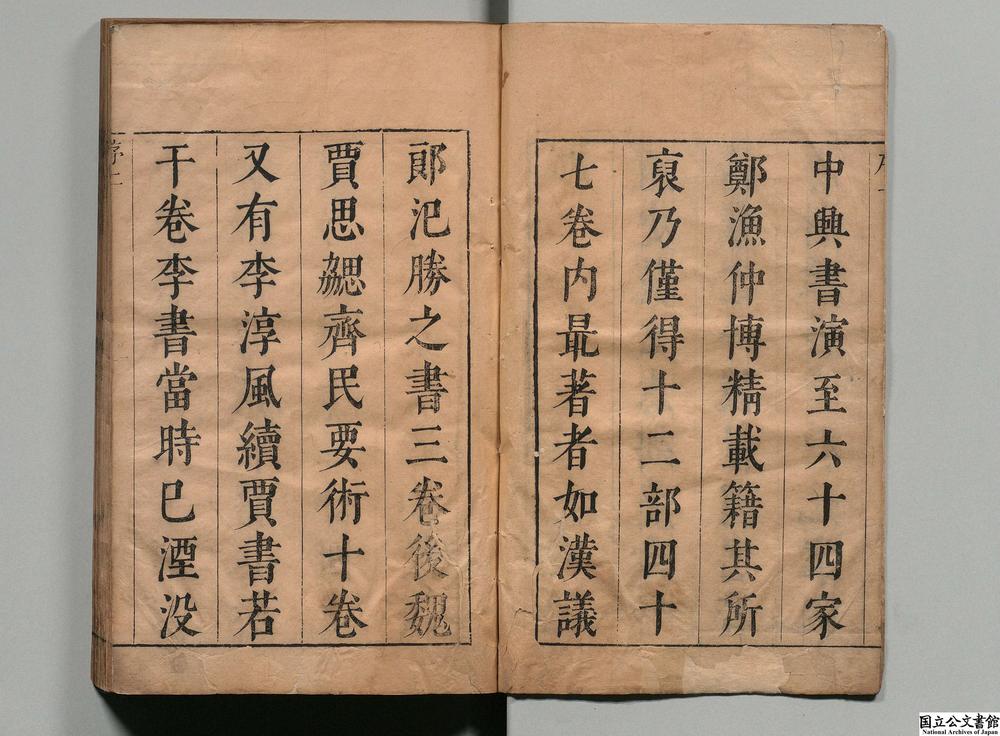 中興書演至六十四家
鄭漁仲博精載籍其所
裒乃僅得十二部四十
七卷内最著者如漢議
郎氾勝之書三卷後魏
賈思勰齊民要術十卷
又有李淳風續賈書若
干卷李書當時已湮没
序二
国立公文書館
National Archives of Japan